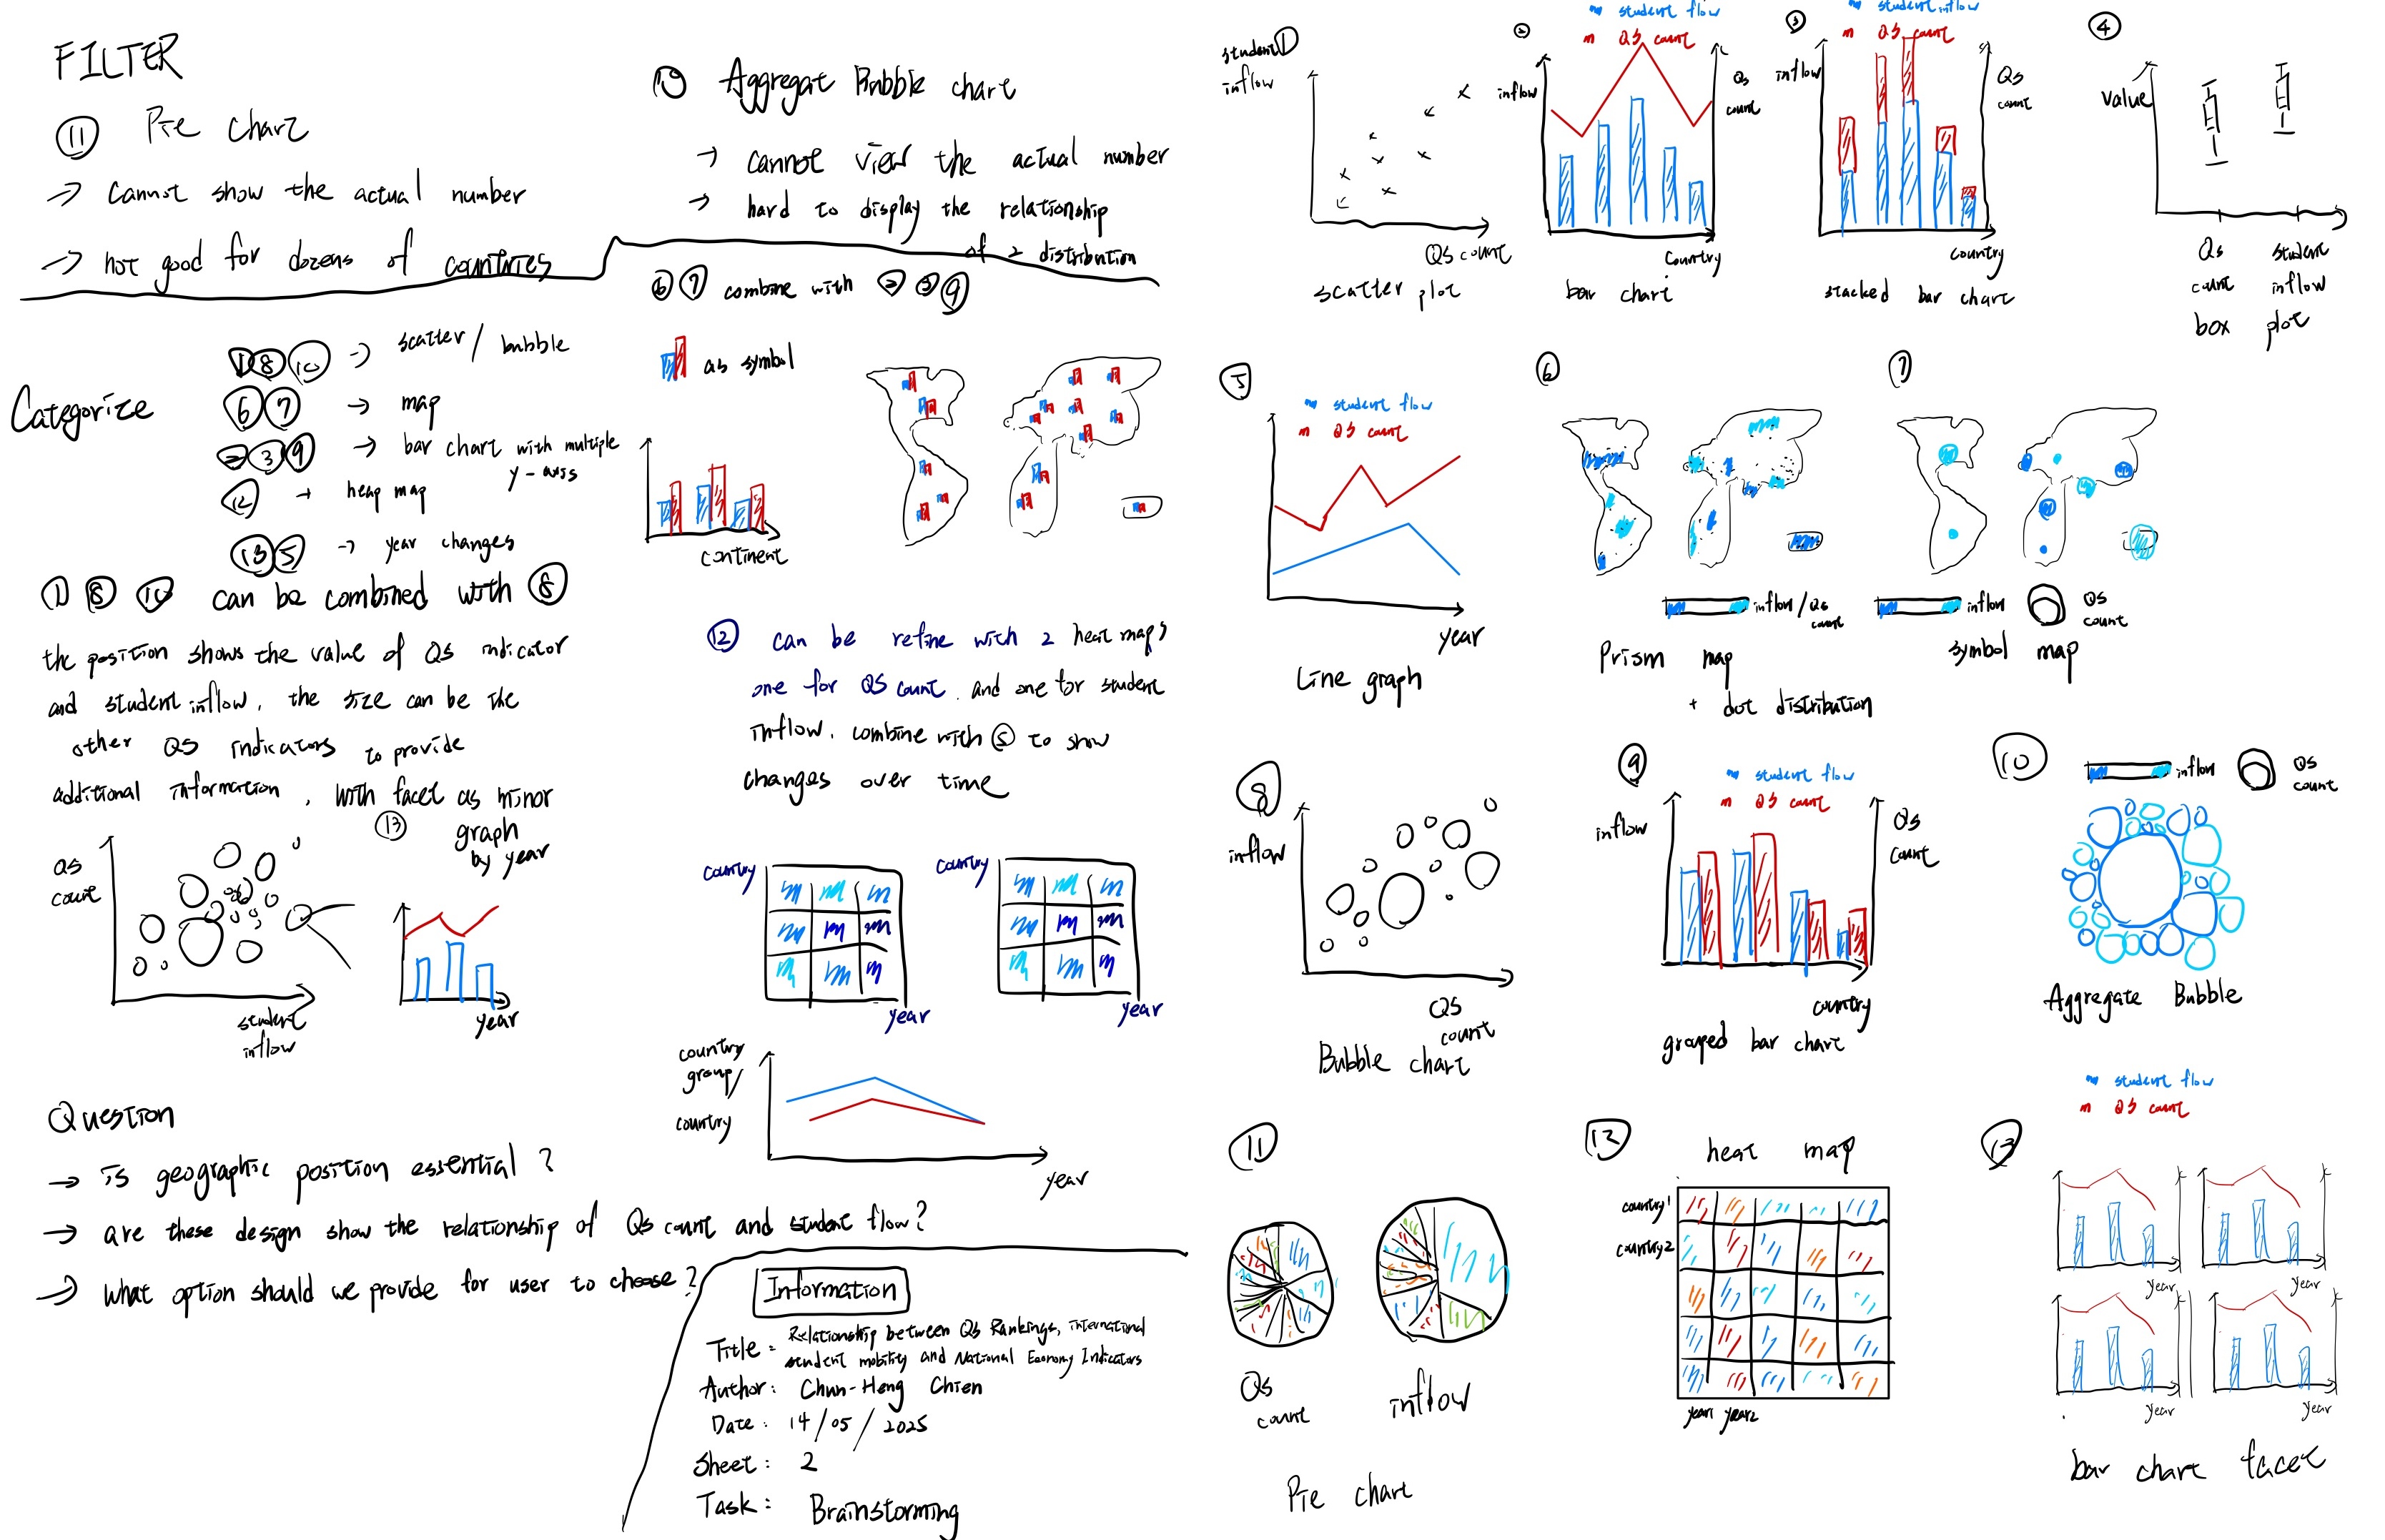 FILTER
⑪ Pie chart
→ cannot show the actual number
→ not good for dozens of countries
⑩ Aggregat Bubble chart
→ cannot view the actual number
→ hard to display the relationship
of 2 distribution
Categorize
① ⑧ ⑩ → scatter / bubble
⑥ ⑦ → map
② ③ ⑨ → bar chart with multiple
y-axis
⑫ → heap map
⑬ ⑤ → year changes
① ⑧ ⑩ can be combined with ⑧
the position shows the value of QS indicator
and student inflow, the size can be the
other QS indicators to provide
additional information, with facet as minor
⑬ graph
by year
QS
count
student
inflow
year
⑥ ⑦ combine with ② ③ ⑨
as symbol
continent
⑫ can be refine with 2 heat maps
one for QS count and one for student
inflow, combine with ⑤ to show
changes over time
country
year
country
year
country
group/
country
year
Question
→ is geographic position essential?
→ are these design show the relationship of QS count and student flow?
→ What option should we provide for user to choose?
Information
Title: Relationship between QS Rankings, international
student mobility and National Economy Indicators
Author: Chun-Heng Chien
Date: 14/05/2025
Sheet: 2
Task: Brainstorming
①
student
inflow
QS count
scatter plot
②
student flow
QS count
inflow
QS
count
country
bar chart
③
student inflow
QS count
inflow
QS
count
country
stacked bar chart
④
value
QS
count
student
inflow
box plot
⑤
student flow
QS count
year
Line graph
⑥
inflow/QS
count
Prism map
+ dot distribution
⑦
inflow
QS
count
symbol map
⑧
inflow
QS
count
Bubble chart
⑨
student flow
QS count
inflow
QS
count
country
grouped bar chart
⑩
inflow
QS
count
Aggregate Bubble
⑪
QS
count
inflow
Pie chart
⑫
heat map
country1
country2
year1 year2
⑬
student flow
QS count
year
year
year
year
bar chart facet